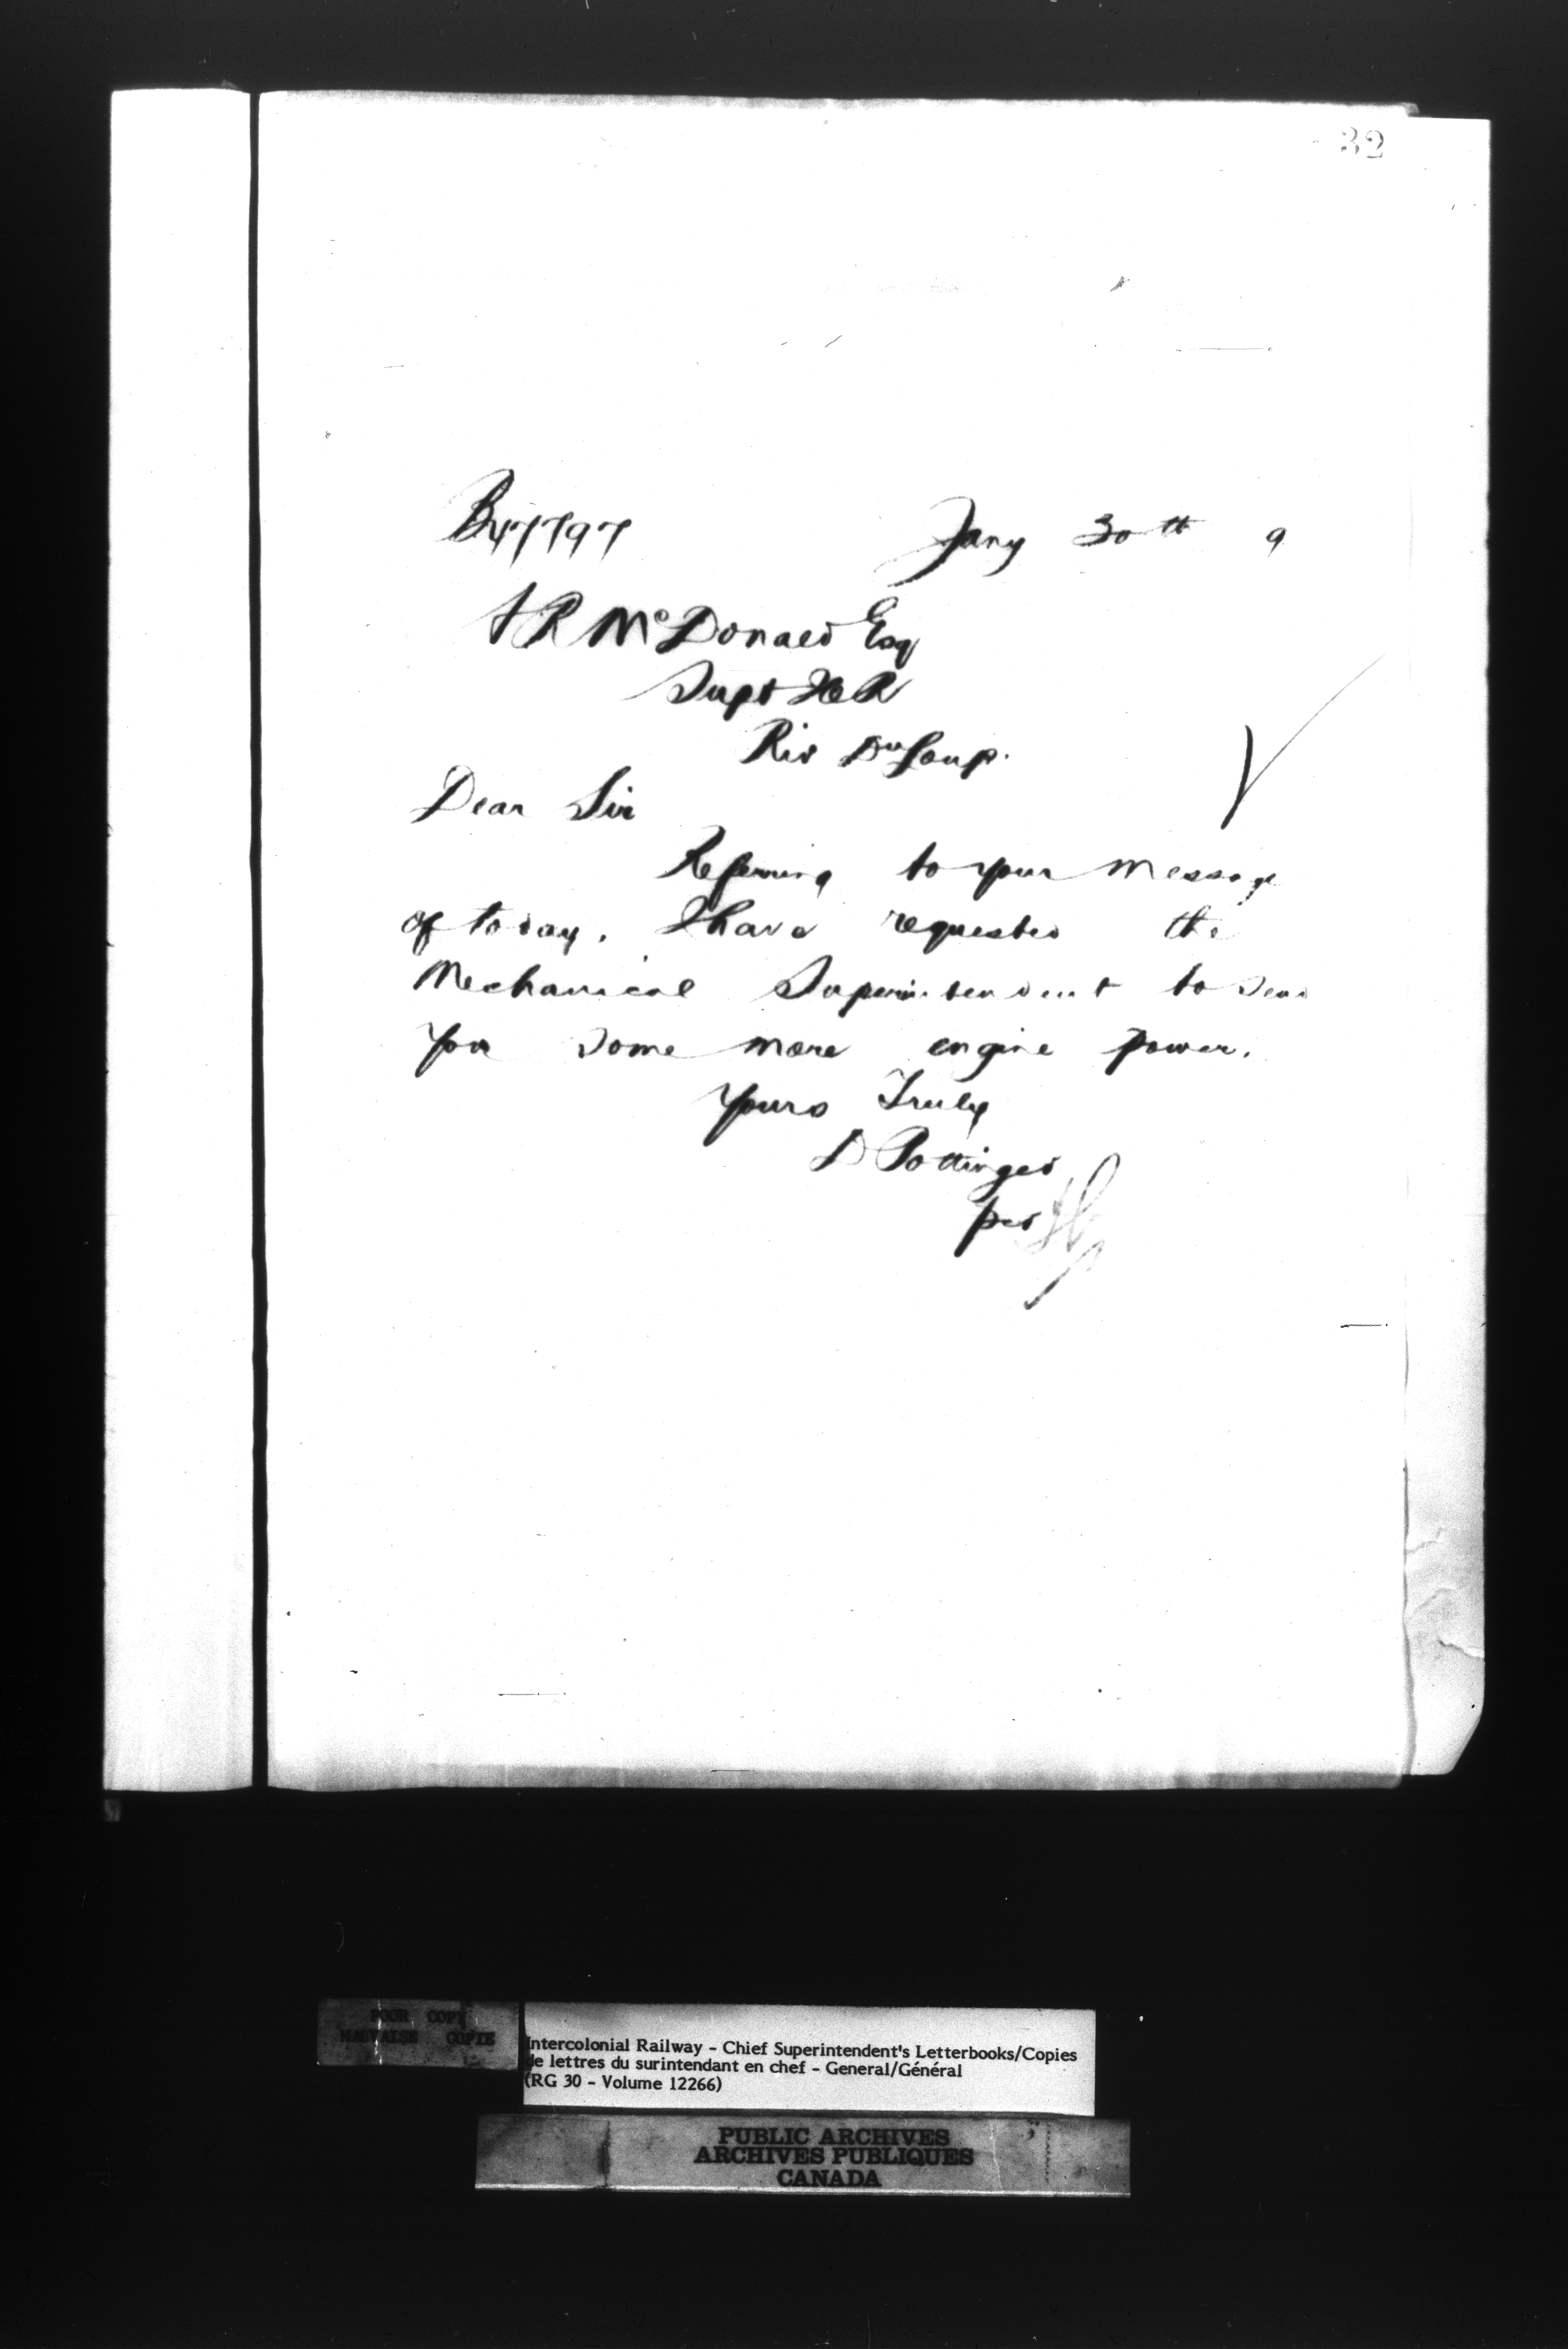 32
B47797 Jany 30th 9
A R McDonald Esq
Supt ICR
Riv Du Loup.
Dear Sir
Referring to your message
of today, I have requested the
Mechanical Superintendent to send
you some more engine power.
Yours Truly
D Pottinger
per
POOR COPY
MAUVAISE COPIE
Intercolonial Railway - Chief Superintendent's Letterbooks/Copies
de lettres du surintendant en chef - General/Général
(RG 30 - Volume 12266)
PUBLIC ARCHIVES
ARCHIVES PUBLIQUES
CANADA